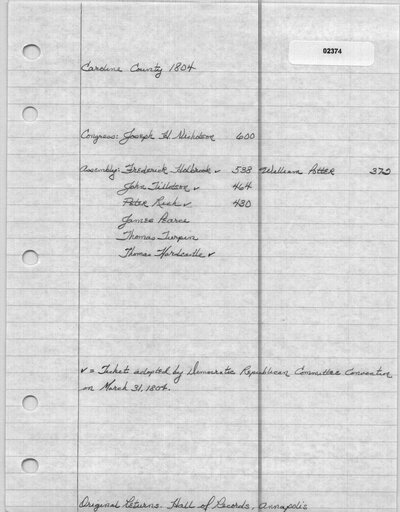 02374
Caroline County 1804
Congress: Joseph H. Nicholson 600
Assembly: Frederick Holbrook ✓ 538 William Potter 372
John Tillotson ✓ 464
Peter Rich ✓ 430
James Pearce
Thomas Turpin
Thomas Hardcastle ✓
✓ = Ticket adopted by Democratic Republican Committee Convention
on March 31, 1804.
Original Returns. Hall of Records, Annapolis